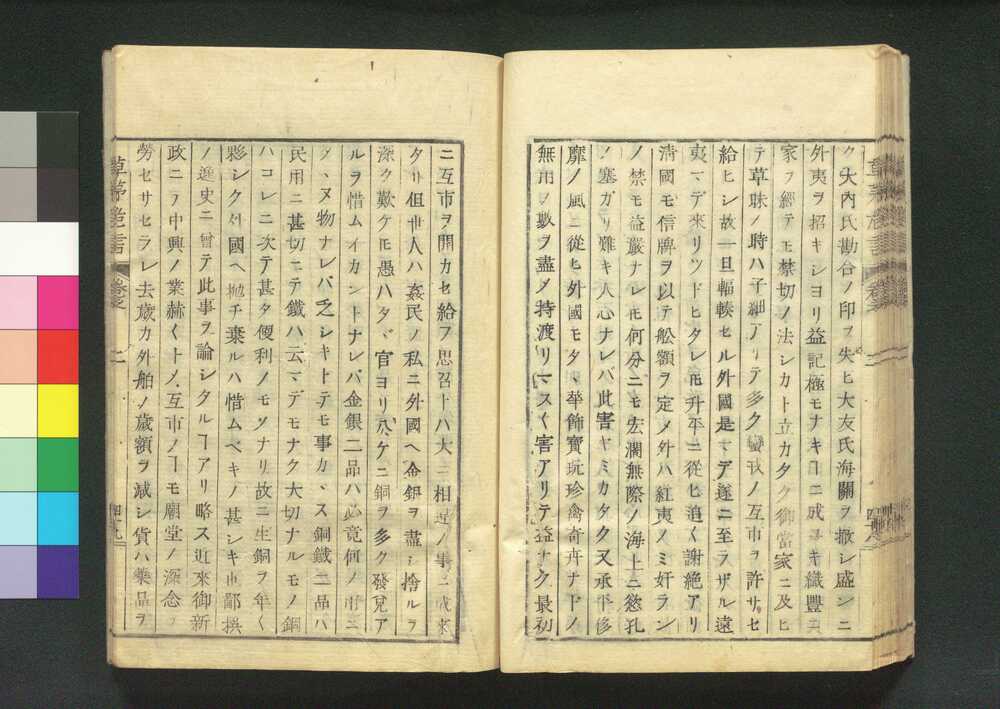 ク大内氏勘合ノ印ヲ失ヒ大友氏海關ヲ撤シ盛ンニ
外夷ヲ招キシヨリ益記極モナキヿニ成ユキ織豐二
家ヲ經テモ禁切ノ法シカト立カタク御當家ニ及ヒ
テ草昧ノ時ハ子細アリテ多ク蠻戎ノ互市ヲ許サセ
給ヒシ故一旦輻輳セル外國是マデ遂ニ至ラザル遠
夷マデ來リツドヒタレ𪜈升平ニ從ヒ追〱謝絶アリ
清國モ信牌ヲ以テ舩額ヲ定メ外ハ紅夷ノミ奸ラン
ノ禁モ益嚴ナレ𪜈何分ニモ宏濶無際ノ海上ニ慾孔
ノ塞ガリ難キ人心ナレバ此害ヤミカタク又承平侈
靡ノ風ニ從ヒ外國モタヽ華飾寶玩珍禽奇卉ナドノ
無用ノ數ヲ盡メ持渡リマス〱害アリテ益ナク最初
ニ互市ヲ開カセ給フ思召トハ大ニ相違ノ事ニ成來
タリ但世人ハ姦民ノ私ニ外國ヘ金銀ヲ盡シ捨ルヲ
深ク歎ケモ愚ハタヾ官ヨリ公ケニ銅ヲ多ク發兌ア
ルヲ惜ムイカントナレバ金銀二品ハ必竟何ノ用ニ
タヽヌ物ナレバ乏シキトテモ事カヽス銅鐵二品ハ
民用ニ甚切ニテ鐵ハ云マデモナク大切ナルモノ銅
ハコレニ次テ甚タ便利ノモノナリ故ニ生銅ヲ年〱
夥シク外國ヘ抛チ棄ルハ惜ムベキノ甚シキ也鄙撰
ノ逸史ニ曾テ此事ヲ論シタルヿアリ略ス近來御新
政ニヲ中興ノ業赫〱トメ互市ノヿモ廟堂ノ深念ヲ
勞セサセラレ去歳カ外舶ノ歳額ヲ減シ貨ハ藥品ヲ
草茅危言
卷之
二
四十九